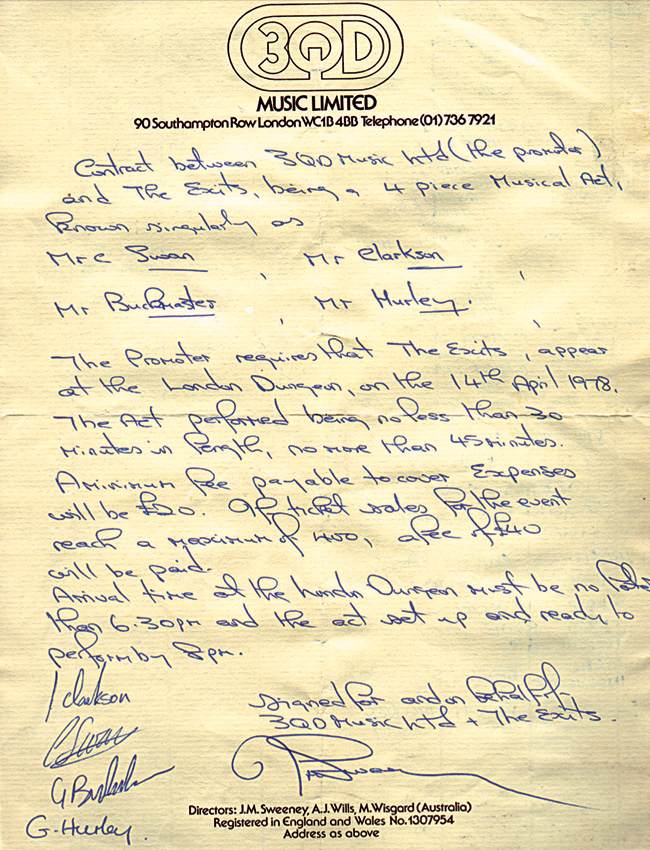 3QD
MUSIC LIMITED
90 Southampton Row London WC1B 4BB Telephone (01) 736 7921
Contract between 3QD Music Ltd (the promoter)
and The Exits, being a 4 piece Musical Act,
known singularly as
Mr C Swan , Mr Clarkson ,
Mr Buckmaster , Mr Hurley. ,
The Promoter requires that The Exits, appear
at the London Dungeon, on the 14th April 1978.
The Act performed being no less than 30
minutes in length, no more than 45 minutes.
A minimum fee payable to cover Expenses
will be £20. If ticket sales for the event
reach a maximum of 400, a fee of £40
will be paid.
Arrival time at the London Dungeon must be no later
than 6.30pm and the act set up and ready to
perform by 8pm.
J Clarkson
signed for and on behalf of
3QD Music Ltd + The Exits.
C Swan
G
G. Hurley.
Directors: J.M. Sweeney, A.J. Wills, M. Wisgard (Australia)
Registered in England and Wales No. 1307954
Address as above